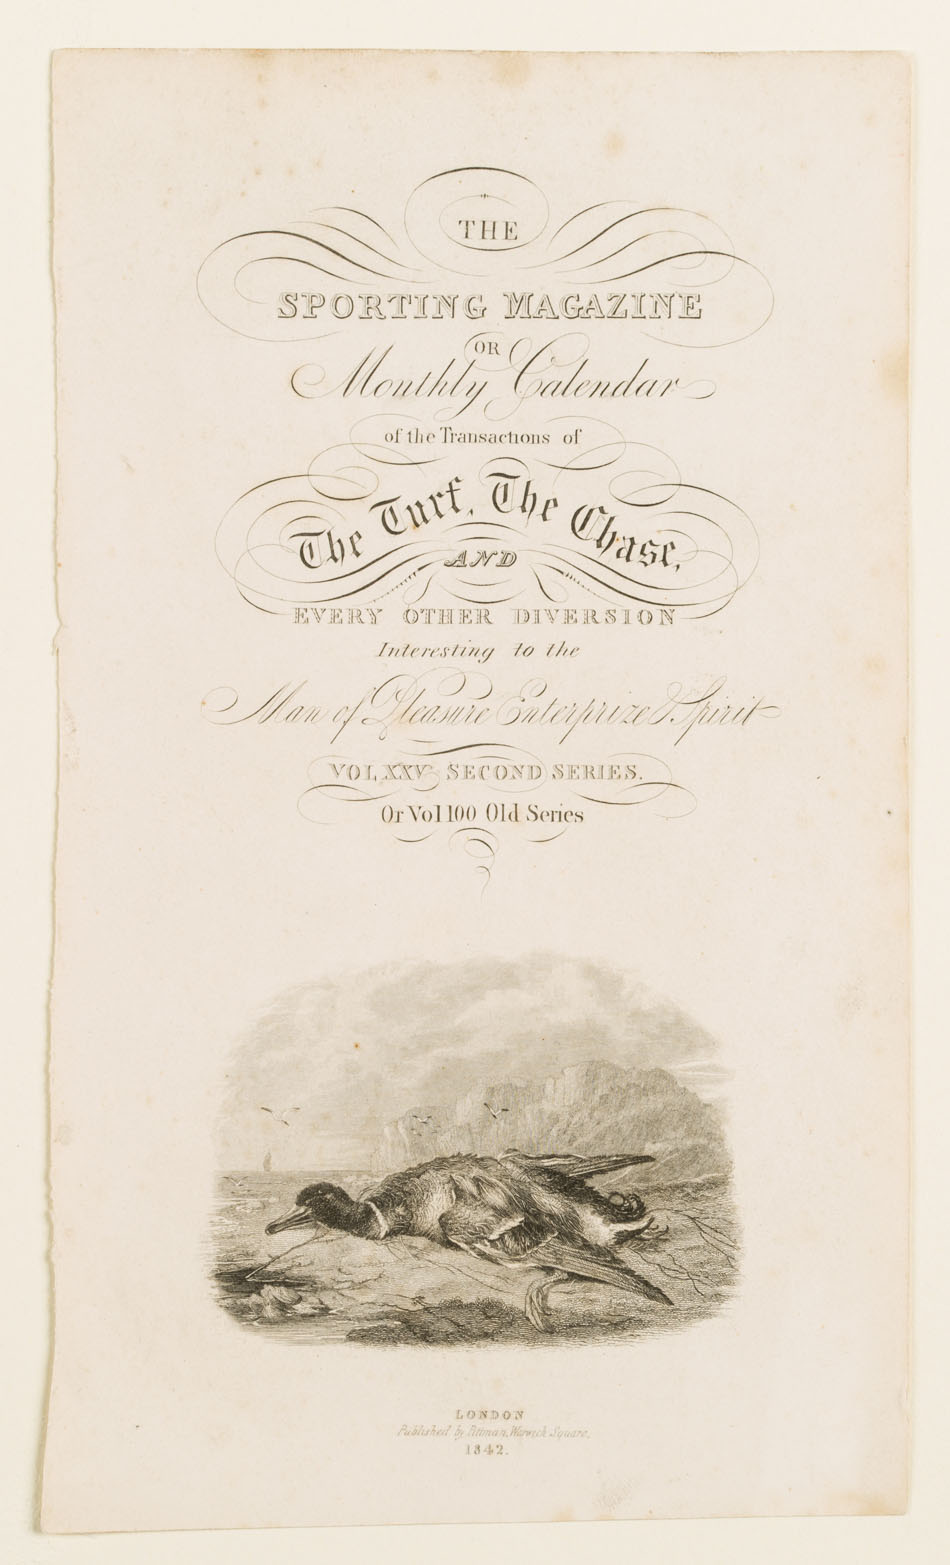 THE
SPORTING MAGAZINE
OR
Monthly Calendar
of the Transactions of
The Turf, The Chase,
AND
EVERY OTHER DIVERSION
Interesting to the
Man of Pleasure Enterprize & Spirit
VOL XXV SECOND SERIES.
Or Vol 100 Old Series
LONDON
Published by Pittman, Warwick Square,
1842.